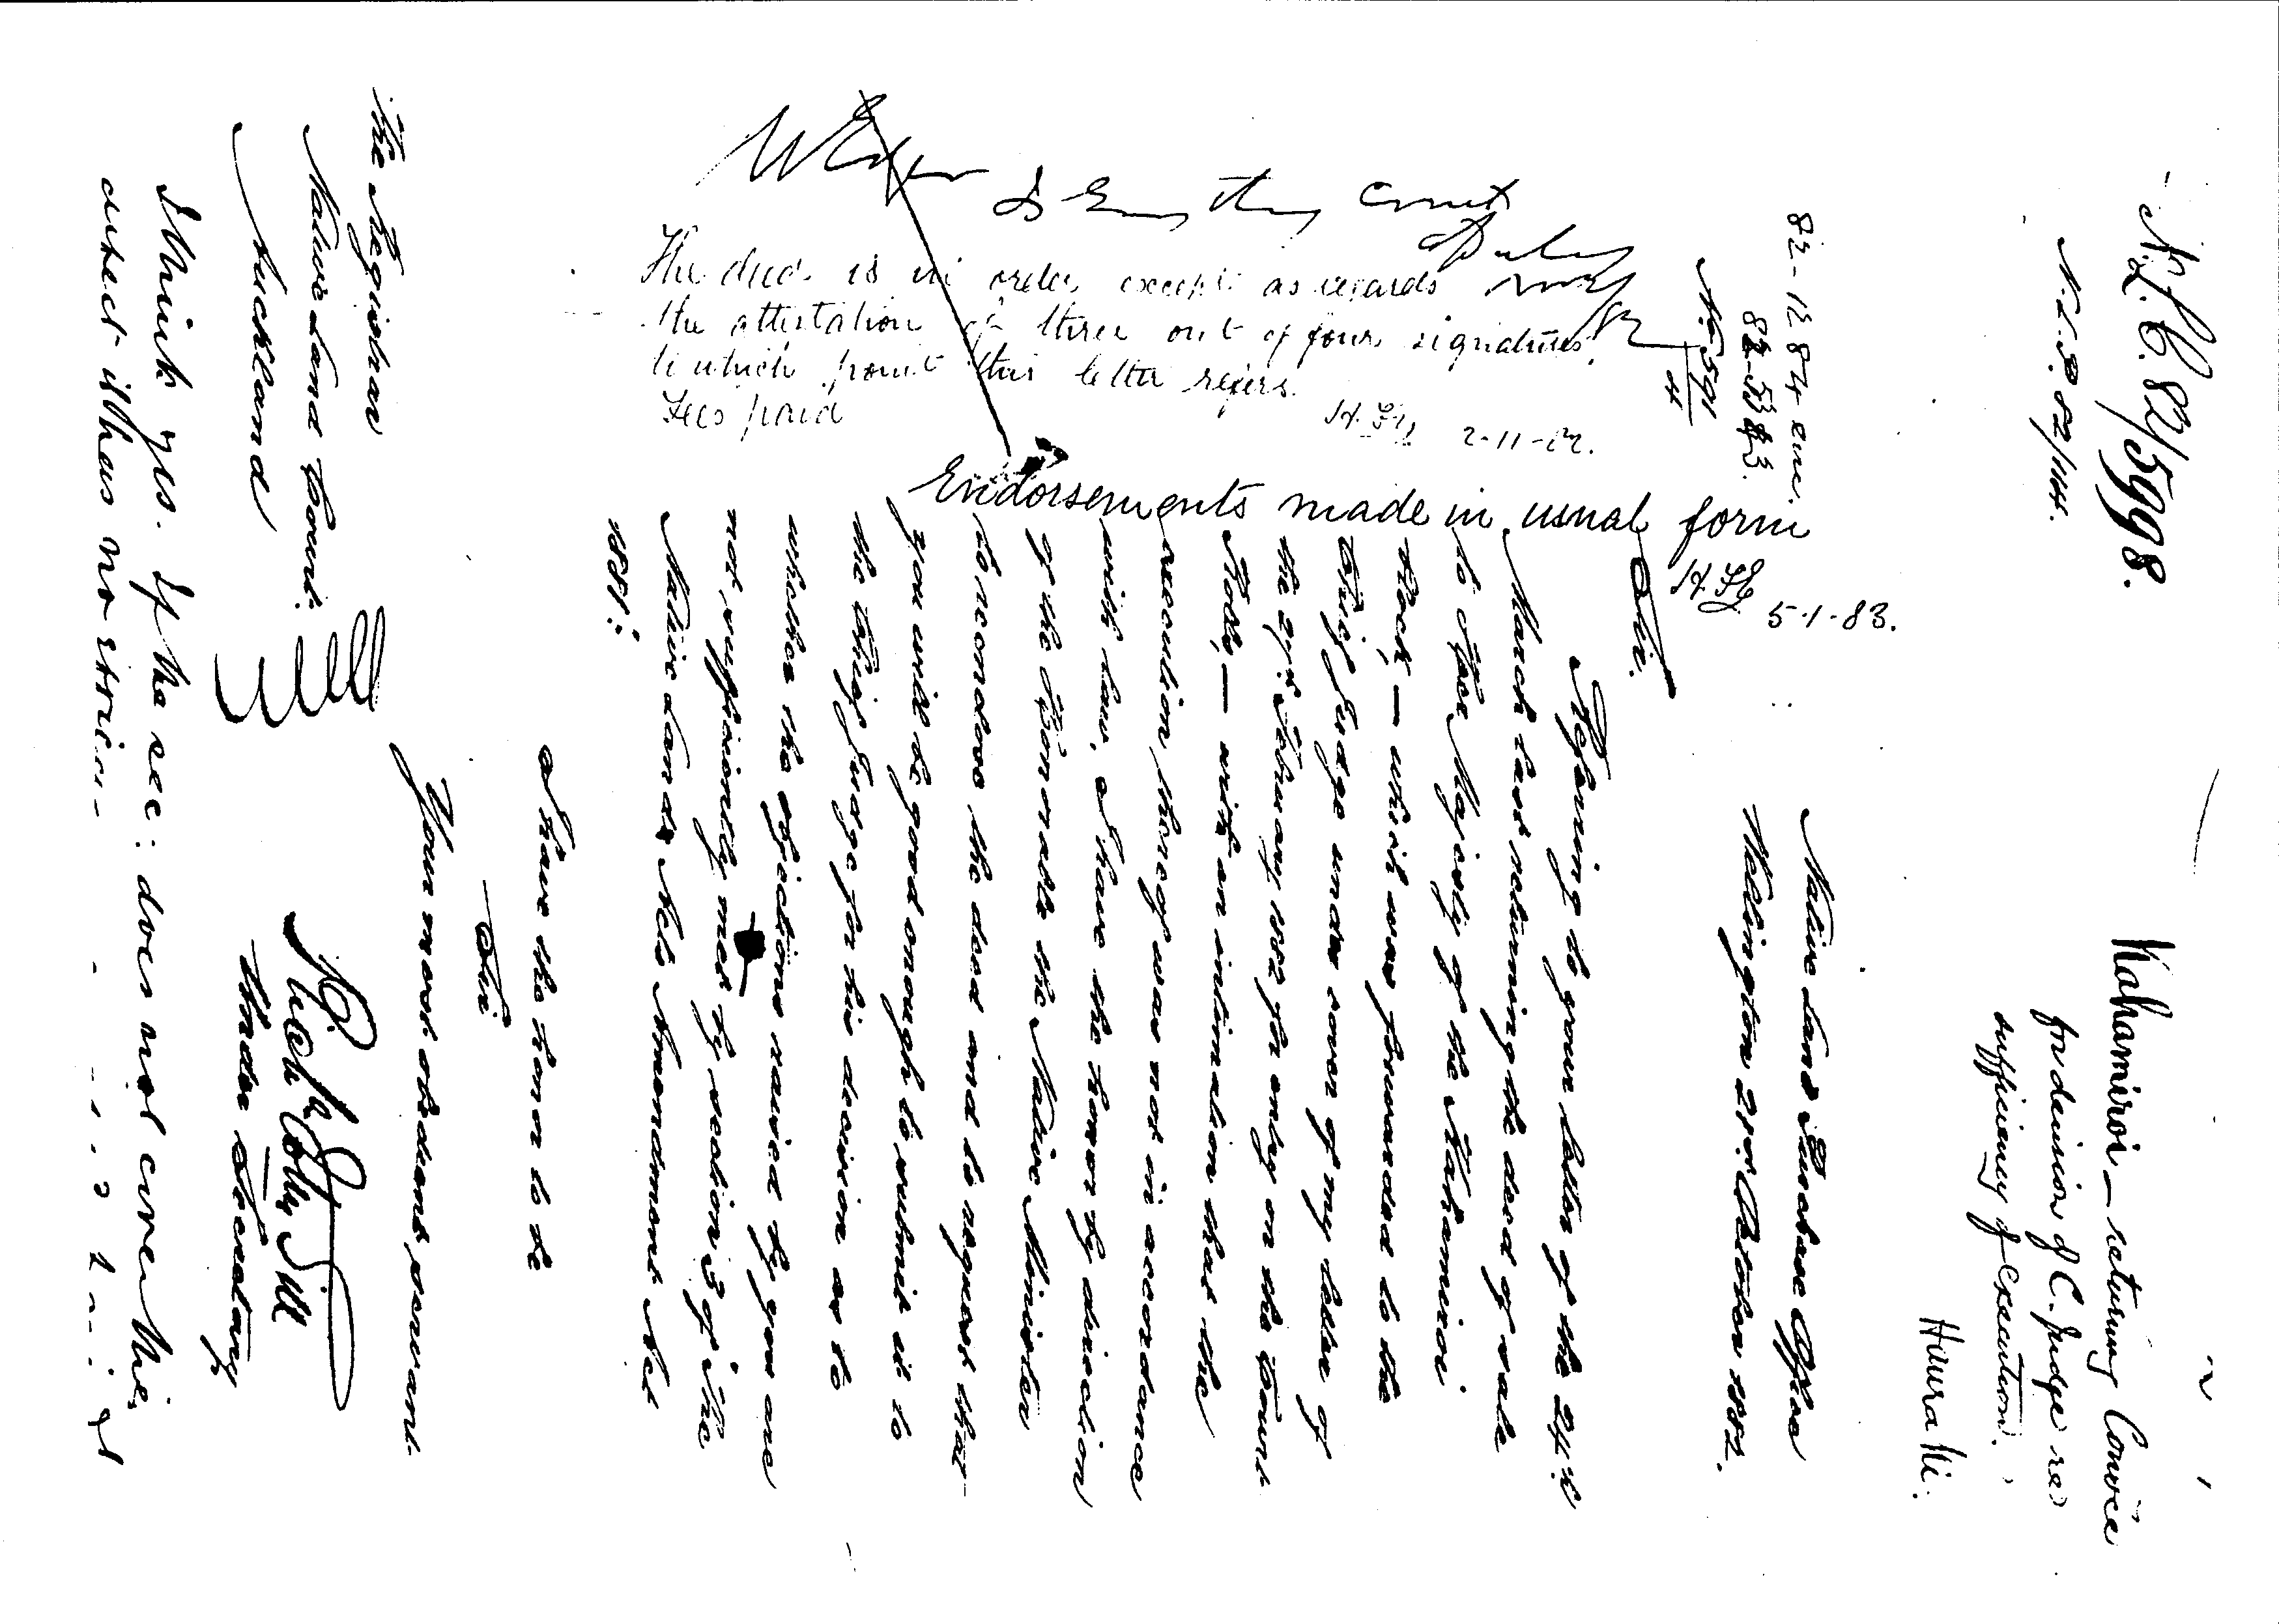 N.L.C. 82/5998.
N.L.P. 82/144.
Kahamiroi — returning Convce
for decision of C. Judge re
sufficiency of execution.
Hauraki.
82-1284 enc.
82-5383.
No 591
4
Native Land Purchase Office
Wellington 21st October 1882.
Sir.
Referring to your letter of the 24th
March last returning the deed of sale
to Her Majesty of the Kahamiroi
Block, — which was forwarded to the
Chief Judge under cover of my letter of
the 27th February 1882 for entry on the Court
Rolls, — with an intimation that the
execution thereof was not in accordance
with law, I have the honor by direction
of the Honorable the Native Minister
to reenclose the deed and to request that
you will be good enough to submit it to
the Chief Judge for his decision as to
whether the objections raised by you are
not sufficiently met by section 3 of the
Native Lands Acts Amendment Act
1881:
I have the honor to be
Sir
Your most obedient servant
Under Secretary
The Registrar
Native Land Court.
Auckland
I think yes. If the sec: does not cover this
defect it has no
The deed is in order except as regards
the attestation of three out of four signatures,
to which point this letter refers.
Fees paid
2-11-82.
Endorsements made in usual form
5-1-83.